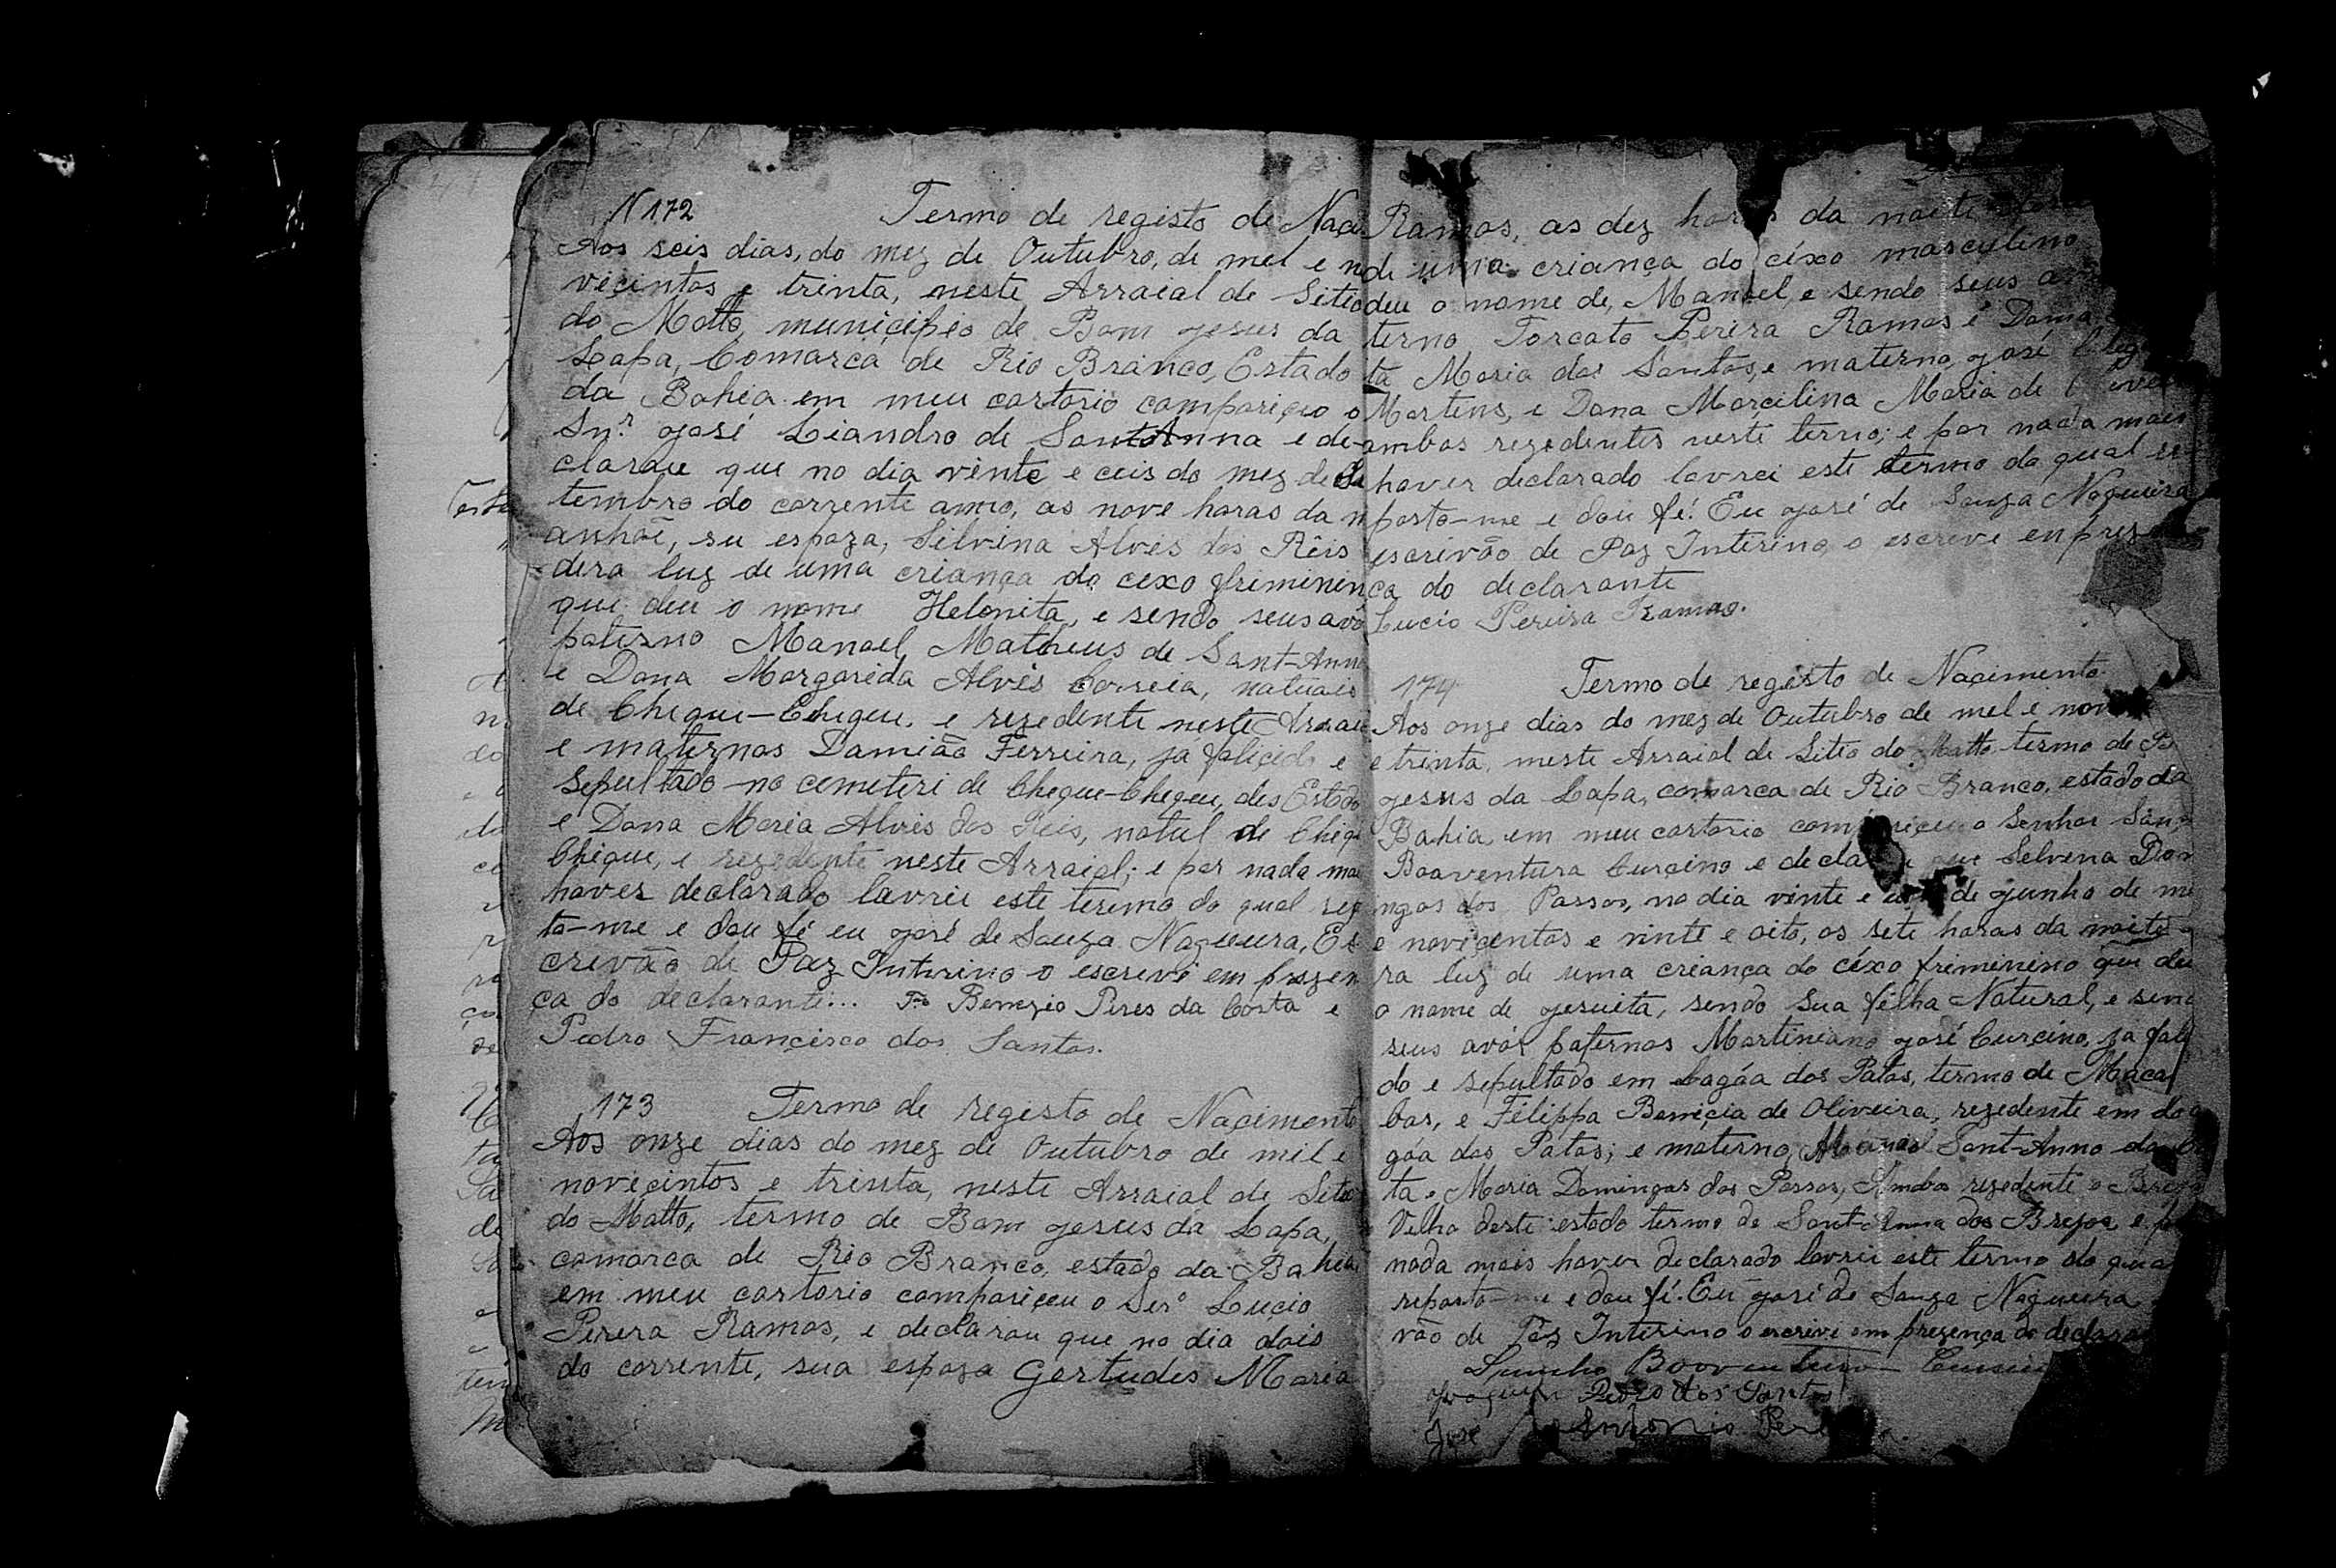 N 172 Termo de registo de Naçi
Aos seis dias, do mez de Outubro, de mel e no
veçintos e trinta, neste Arraial de Sitio
do Motto, municipio de Bom Jesus da
Lapa, Comarca de Rio Branco, Estado
da Bahia em meu cartorio compariçeo o
Snr. José Liandro de SantAnna e de-
clarau que no dia vente e ceis do mez de Se
tembro do corrente anno, as nove horas da m
anhaē, su espoza, Silvina Alves dos Rêis
dera luz de uma criança do cexo friminin
que deu o nome Helonita, e sendo seus avó
paterno Manoel Matheus de Sant-Ann
e Dona Margarida Alves Correia, natuais
de Cheque-Chequeu. e rezedente neste Arraai
e maternos Damião Ferreira, ja faliçido e
sepultado no cemeteri de Cheque-Chequeu, des Estado
e Dona Maria Alves dos Reis, natul de Chequ
Cheque, e rezedente neste Arraial; e por nada mai
haver declarado lavrei este teremo do qual rep
to-me e dou fé eu José de Souza Nogueura, Es
crevão de Paz Interino o escrevi em prezen
ça do declarante... Fo Benezio Peres da Costa e
Pedro Françisco dos Santos.
173 Termo de registo de Naçimento
Aos onze dias do mez de Outubro de mil e
noveçintos e trinta, neste Arraial de Setio
do Motto, termo de Bom Jesus da Lapa,
comarca de Rio Branco, estado da Bahia
em meu cartorio compariçeu o Serº Lucio
Perera Ramos, e declarou que no dia dois
do corrente, sua espoza Gertudes Maria
Ramos, as dez horas da noite
de uma criança do céxo masculino
deu o nome de, Manoel, e sendo seus
terno Torcato Perera Ramos e Dona
ta Maria dos Santos, e materno, José
Martens, e Dona Marcilina Maria de
ambos rezedentes neste termo; e por nada mais
haver declarado lavrei este termo do qual re
porto-me e dou fé. Eu José de Souza Nogueira
escrivão de Paz Interino o escreve en prezen
ça do declarante
Lucio Pereira Ramos.
174 Termo de registo de Naçimento
Aos onze dias do mez de Outubro de mel e nove
e trinta, neste Arraial de Sitio do Matto termo de Bo
Jesus da Lapa, comarca de Rio Branco, estado da
Bahia, em meu cartorio compariçeu o Senhor San
Boaventura Curçino e declarou que Selvena Dom
ngas dos Passos, no dia vinte e de Junho de mi
e noviçentos e vinte e oito, as sete horas da noite
ra luz de uma criança do céxo friminino que deu
o nome de Jesuita, sendo sua filha Natural, e sendo
seus avós paternos Martiniano José Curçino, ja fali
do e sepultado em Lagóa dos Patos, termo de Macaí
bas, e Felippa Beniçia de Oliveira, rezedente em La
góa dos Patos; e materno, Sant-Anno da Cos
ta e Maria Domingas dos Passos, Ambos rezedente o Brejo
Velho deste estado termo de Sant-Anna dos Brejos e por
nada mais haver declarado lavrei este termo do qua
reporto-me e dou fé. Eu José de Souza Nogueira
vão de Páz Interino o escrivi em prezença do declara
Sancho Boaventura Curcin
Joaquim Pedro dos Santos
José Antonio Pere